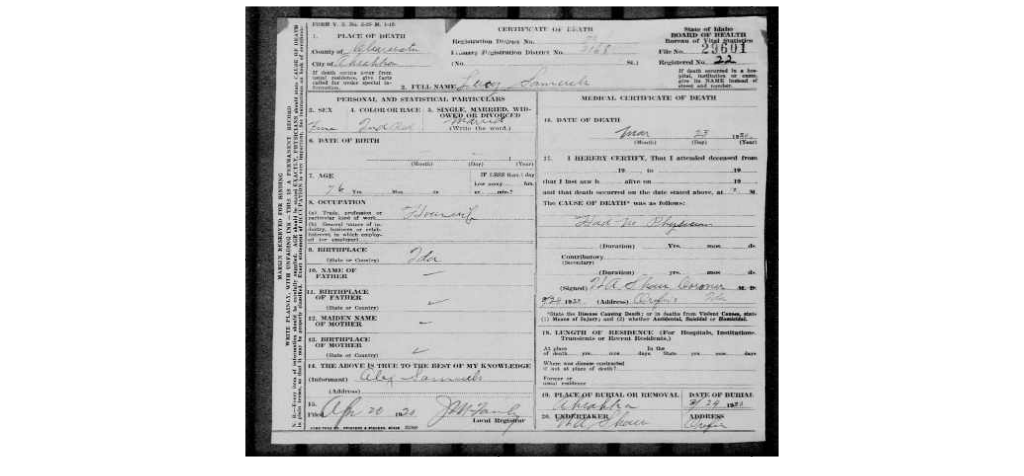 FORM V. S. No.
CERTIFICATE OF DEATH
State of Idaho
BOARD OF HEALTH
Bureau of Vital Statistics
1. PLACE OF DEATH
Registration District No.
County of
Primary Registration District No. 2168
File No. 29601
City of Ahsahka
(No. St.)
Registered No. 22
If death occurs away from usual residence, give facts called for under special information.
If death occurred in a hospital, institution or camp, give its NAME instead of street and number.
2. FULL NAME Lucy Samuels
PERSONAL AND STATISTICAL PARTICULARS
3. SEX
4. COLOR OR RACE
5. SINGLE, MARRIED, WIDOWED OR DIVORCED
Married
(Write the word.)
6. DATE OF BIRTH
(Month) (Day) (Year)
7. AGE
IF LESS than 1 day
how many hrs.
76 Yrs Mos ds or min.?
8. OCCUPATION
(a) Trade, profession or particular kind of work
Housewife
(b) General nature of industry, business or establishment in which employed (or employer)
9. BIRTHPLACE
(State or Country)
Ida
10. NAME OF FATHER
11. BIRTHPLACE OF FATHER
(State or Country)
12. MAIDEN NAME OF MOTHER
13. BIRTHPLACE OF MOTHER
(State or Country)
14. THE ABOVE IS TRUE TO THE BEST OF MY KNOWLEDGE
(Informant) Alex Samuels
(Address)
15.
Filed Apr 20
Local Registrar
MEDICAL CERTIFICATE OF DEATH
16. DATE OF DEATH
Mar 23
(Month) (Day) (Year)
17. I HEREBY CERTIFY, That I attended deceased from
19 to 19
that I last saw h alive on 19
and that death occurred on the date stated above, at M.
The CAUSE OF DEATH* was as follows:
Had No Physician
(Duration) Yrs. mos ds
Contributory
(Secondary)
(Duration) yrs. mos ds
(Signed) Coroner M. D.
(Address)
*State the Disease Causing Death; or in deaths from Violent Causes, state
(1) Means of Injury; and (2) whether Accidental, Suicidal or Homicidal.
18. LENGTH OF RESIDENCE (For Hospitals, Institutions, Transients or Recent Residents.)
At place of death yrs mos days
In the State yrs mos days
Where was disease contracted if not at place of death?
Former or usual residence
19. PLACE OF BURIAL OR REMOVAL
DATE OF BURIAL
Ahsahka
3/24
20. UNDERTAKER
ADDRESS
MARGIN RESERVED FOR BINDING
WRITE PLAINLY, WITH UNFADING INK—THIS IS A PERMANENT RECORD